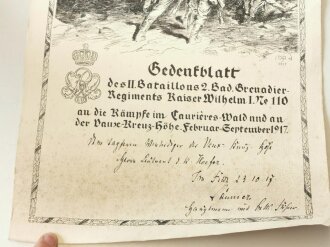 Gedenkblatt
des II. Bataillons 2. Bad. Grenadier-
Regiments Kaiser Wilhelm I. No 110
an die Kämpfe im Caurières-Wald und an
der Vaux-Kreuz-Höhe. Februar-September 1917.
Dem tapferen Verteidiger der Vaux-Kreuz-Höhe
Herrn Leutnant d. R.
Im Felde 23.10.17
Hauptmann und Batl.